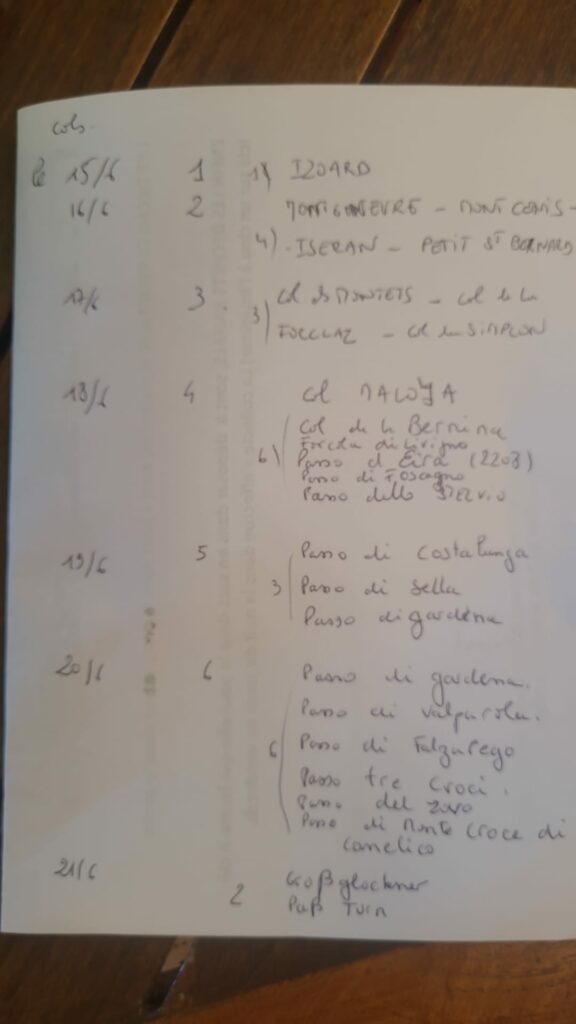 cols.
le 15/6 1 1) IZOARD
16/6 2 MONTGENEVRE - MONT CENIS -
4) - ISERAN - PETIT ST BERNARD
17/6 3. 3) Col des MONTETS - Col de la
FORCLAZ - Col du SIMPLON
18/6 4 Col MALOJA
Col de la Bernina
Forcola di Livigno
6) Passo d'Eira (2208)
Passo di Foscagno
Passo dello STELVIO
19/6 5 Passo di Costalunga
3 Passo di Sella
Passo di gardena
20/6 6 Passo di gardena.
Passo di Valparola.
6 Passo di Falzarego
Passo tre Croci.
Passo del Zovo
Passo di Monte Croce di
Comelico
21/6 Großglockner
2 Paß Turn